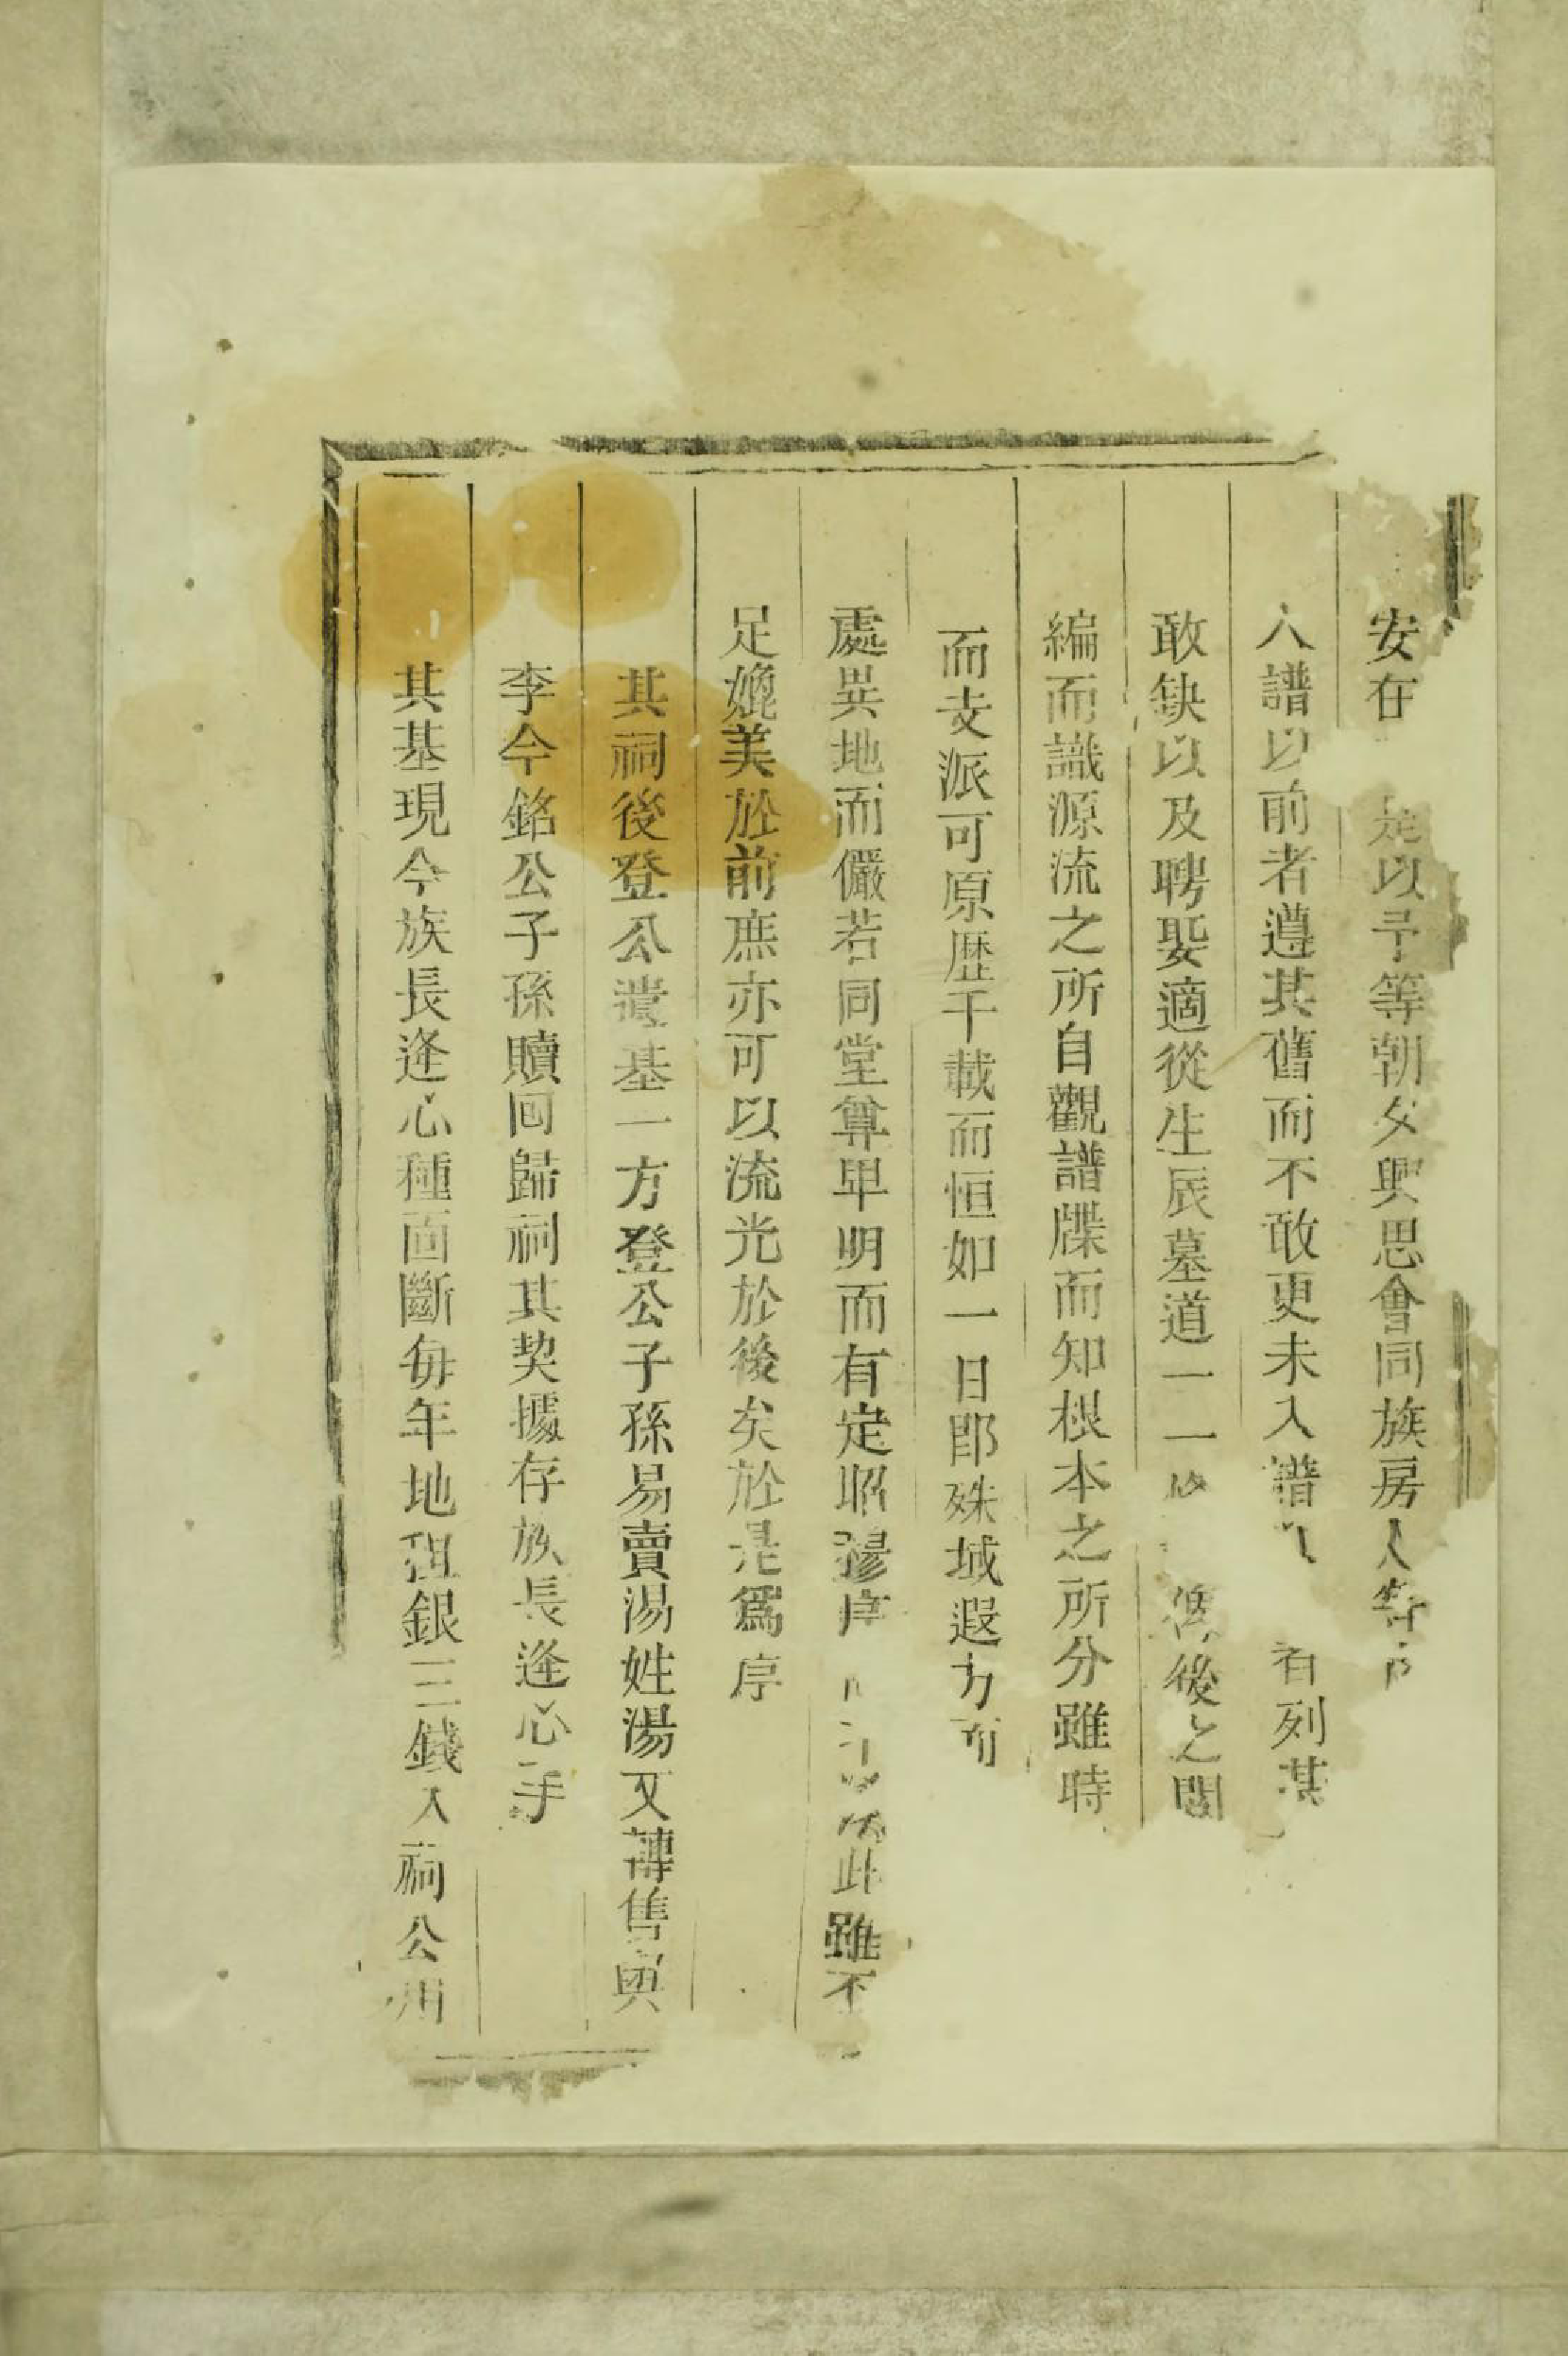 安在是以予等朝夕興思會同族房人等
入譜以前者遵其舊而不敢更未入譜者列其
敢缺以及聘娶適從生辰墓道一一後之閱
編而識源流之所自觀譜牒而知根本之所分雖時
而支派可原歷千載而恒如一日即殊域遐方而
處異地而儼若同堂尊卑明而有定昭穆序此雖不
足媲美於前庶亦可以流光於後矣於是為序
其祠後登公遺基一方登公子孫易賣湯姓湯又轉售與
李今銘公子孫贖囘歸祠其契據存族長逢心手
其基現今族長逢心種面斷每年地租銀三錢入祠公用